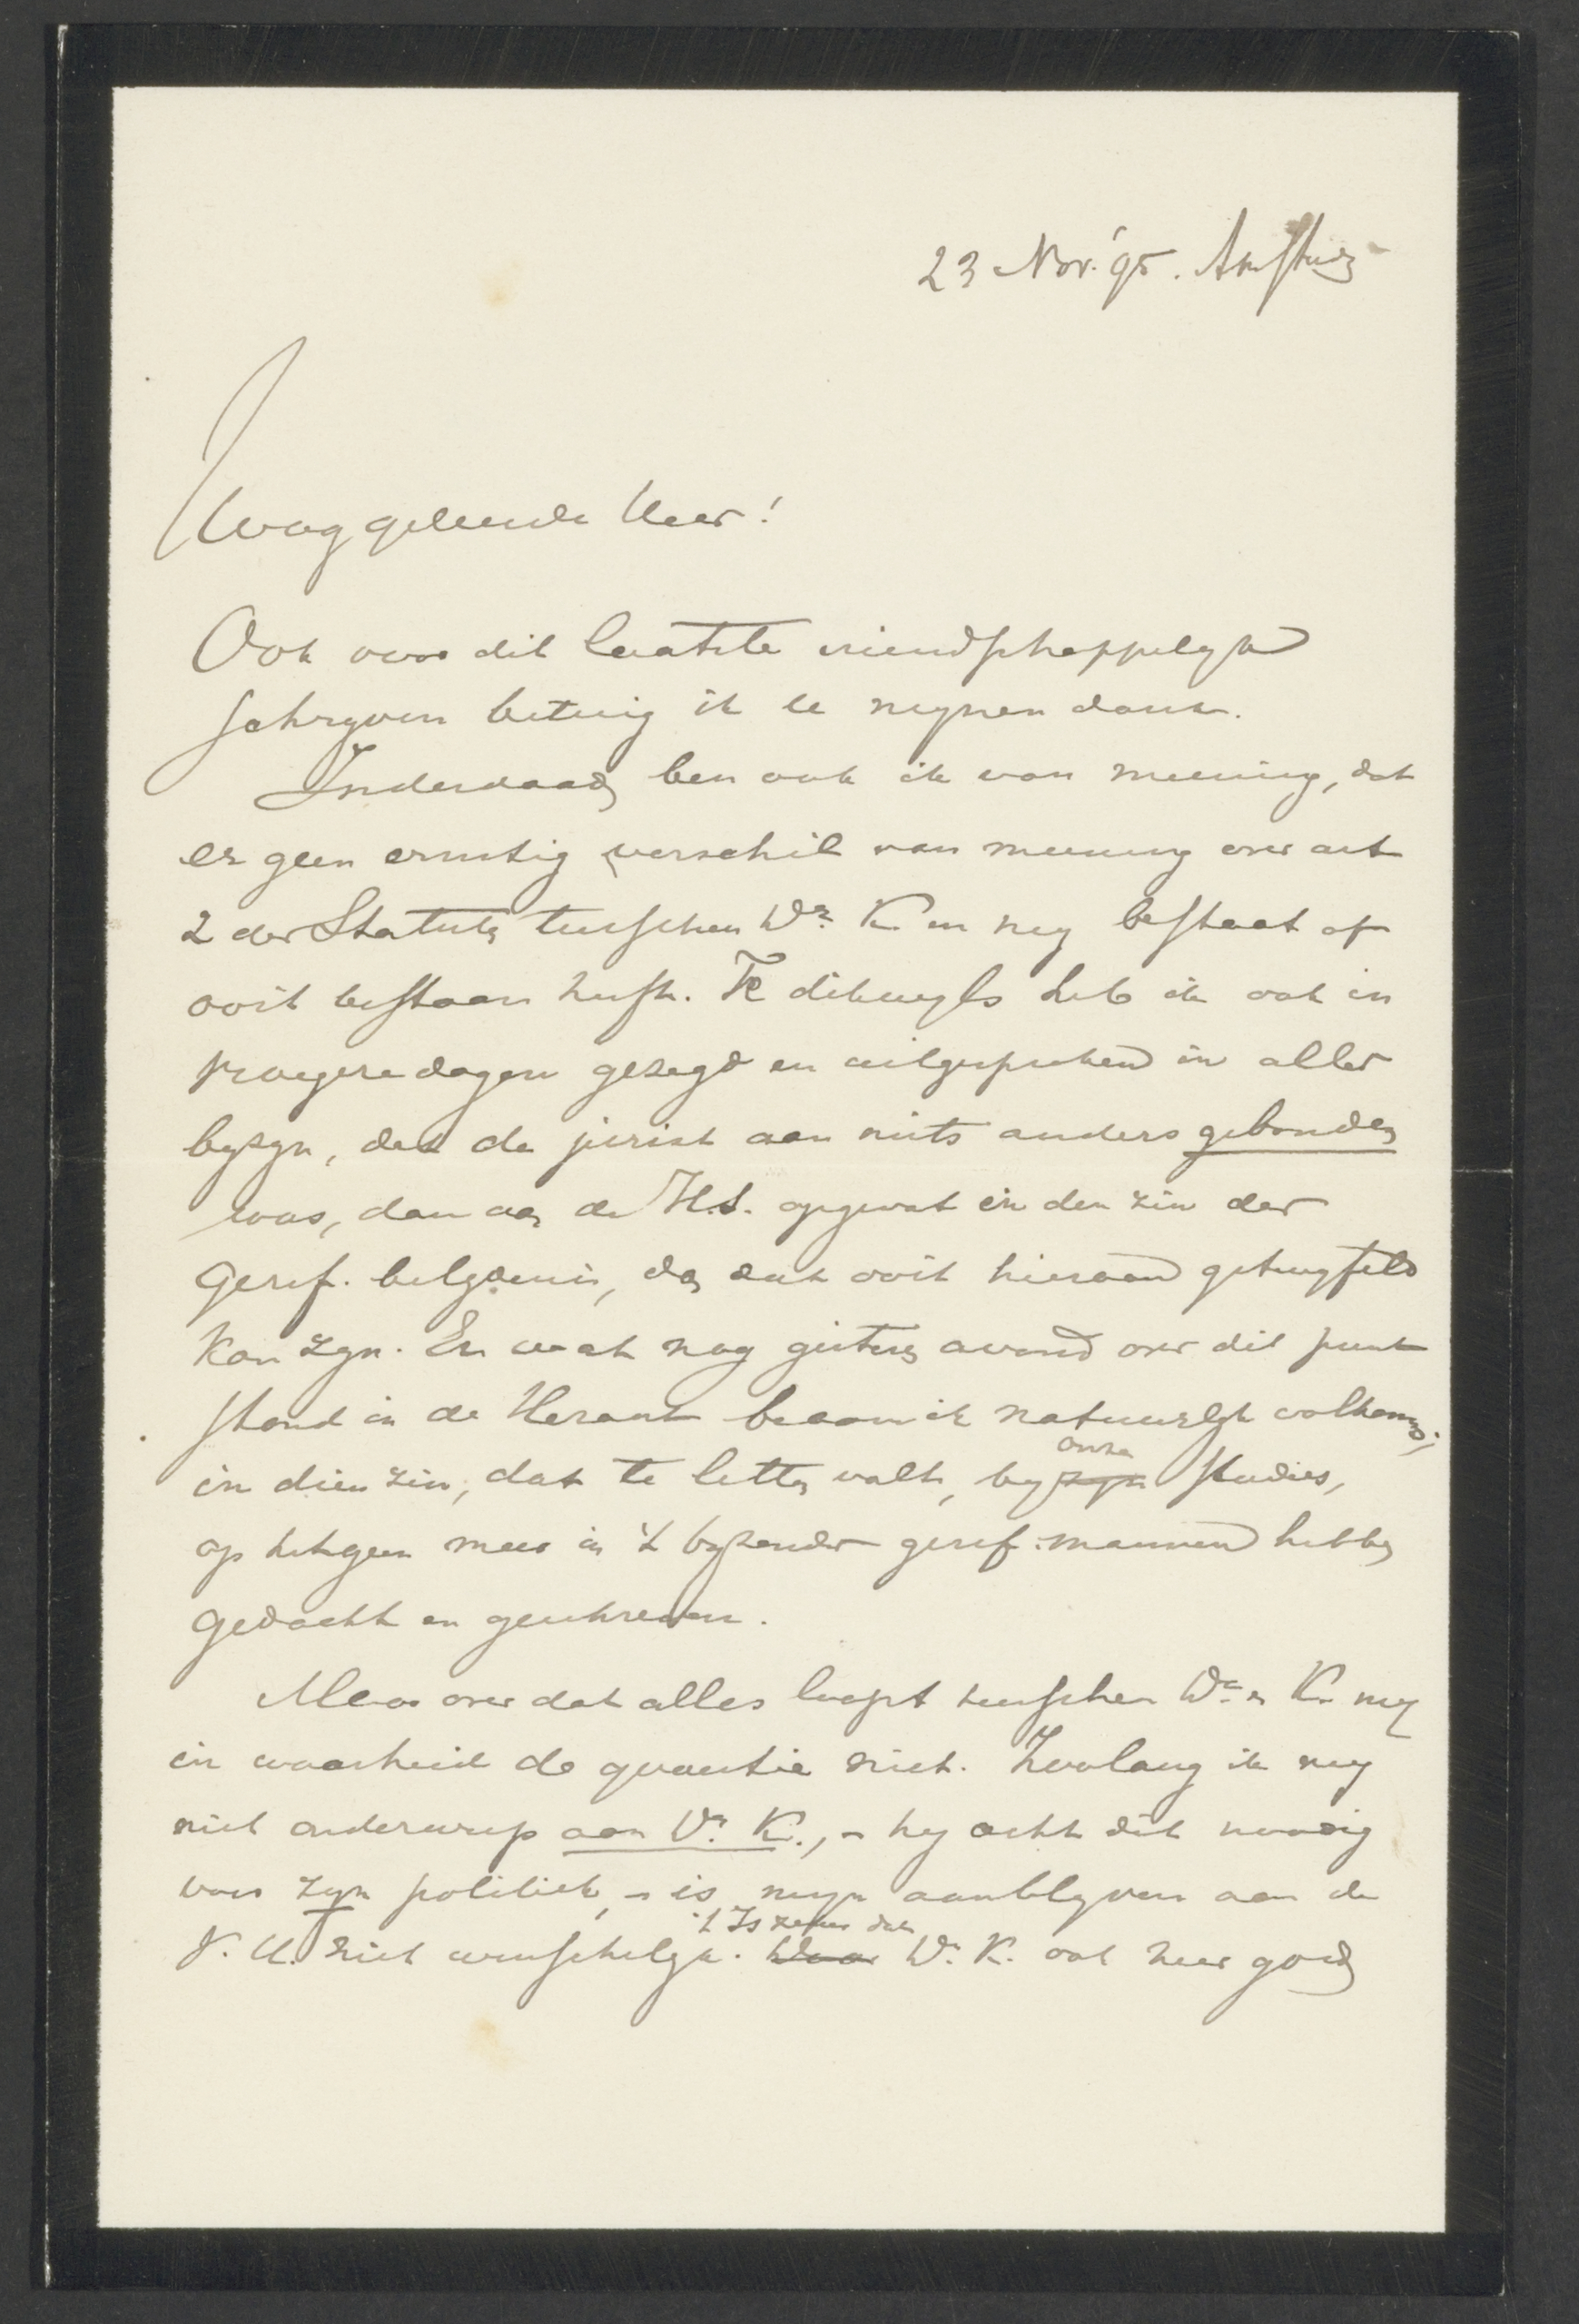 23 Nov. '95. Amsterd.
Hooggeleerde Heer!
Ook voor dit laatste vriendschappelyk
schryven betuig ik U mynen dank.
Inderdaad ben ook ik van meening, dat
er geen ernstig verschil van meening over art
2 der Statuten tusschen Dr. K en my bestaat of
ooit bestaan heeft. Te dikwyls heb ik ook in
vroegere dagen gezegd en uitgesproken in aller
byzyn, dat de jurist aan niets anders gebonden
was, dan aan de H.S. opgevat in den zin der
geref. belydenis, dan dat ooit hieraan getwyfeld
kan zyn. En wat nog gisteren avond over dit punt
stond in de Heraut beaam ik natuurlyk volkomen;
in dien zin, dat te letten valt, by zyn onze studies,
op hetgeen meer in 't byzonder geref. mannen hebben
gedacht en geschreven.
Maar over dat alles loopt tusschen Dr. K. my
in waarheid de quaestie niet. Zoolang ik my
niet onderwerp aan Dr. K., - hy acht dit noodig
voor zyn politiek, - is myn aanblyven aan de
V.U. niet wenschelyk. Waar 't Is zeker dat Dr. K. ook zeer goed